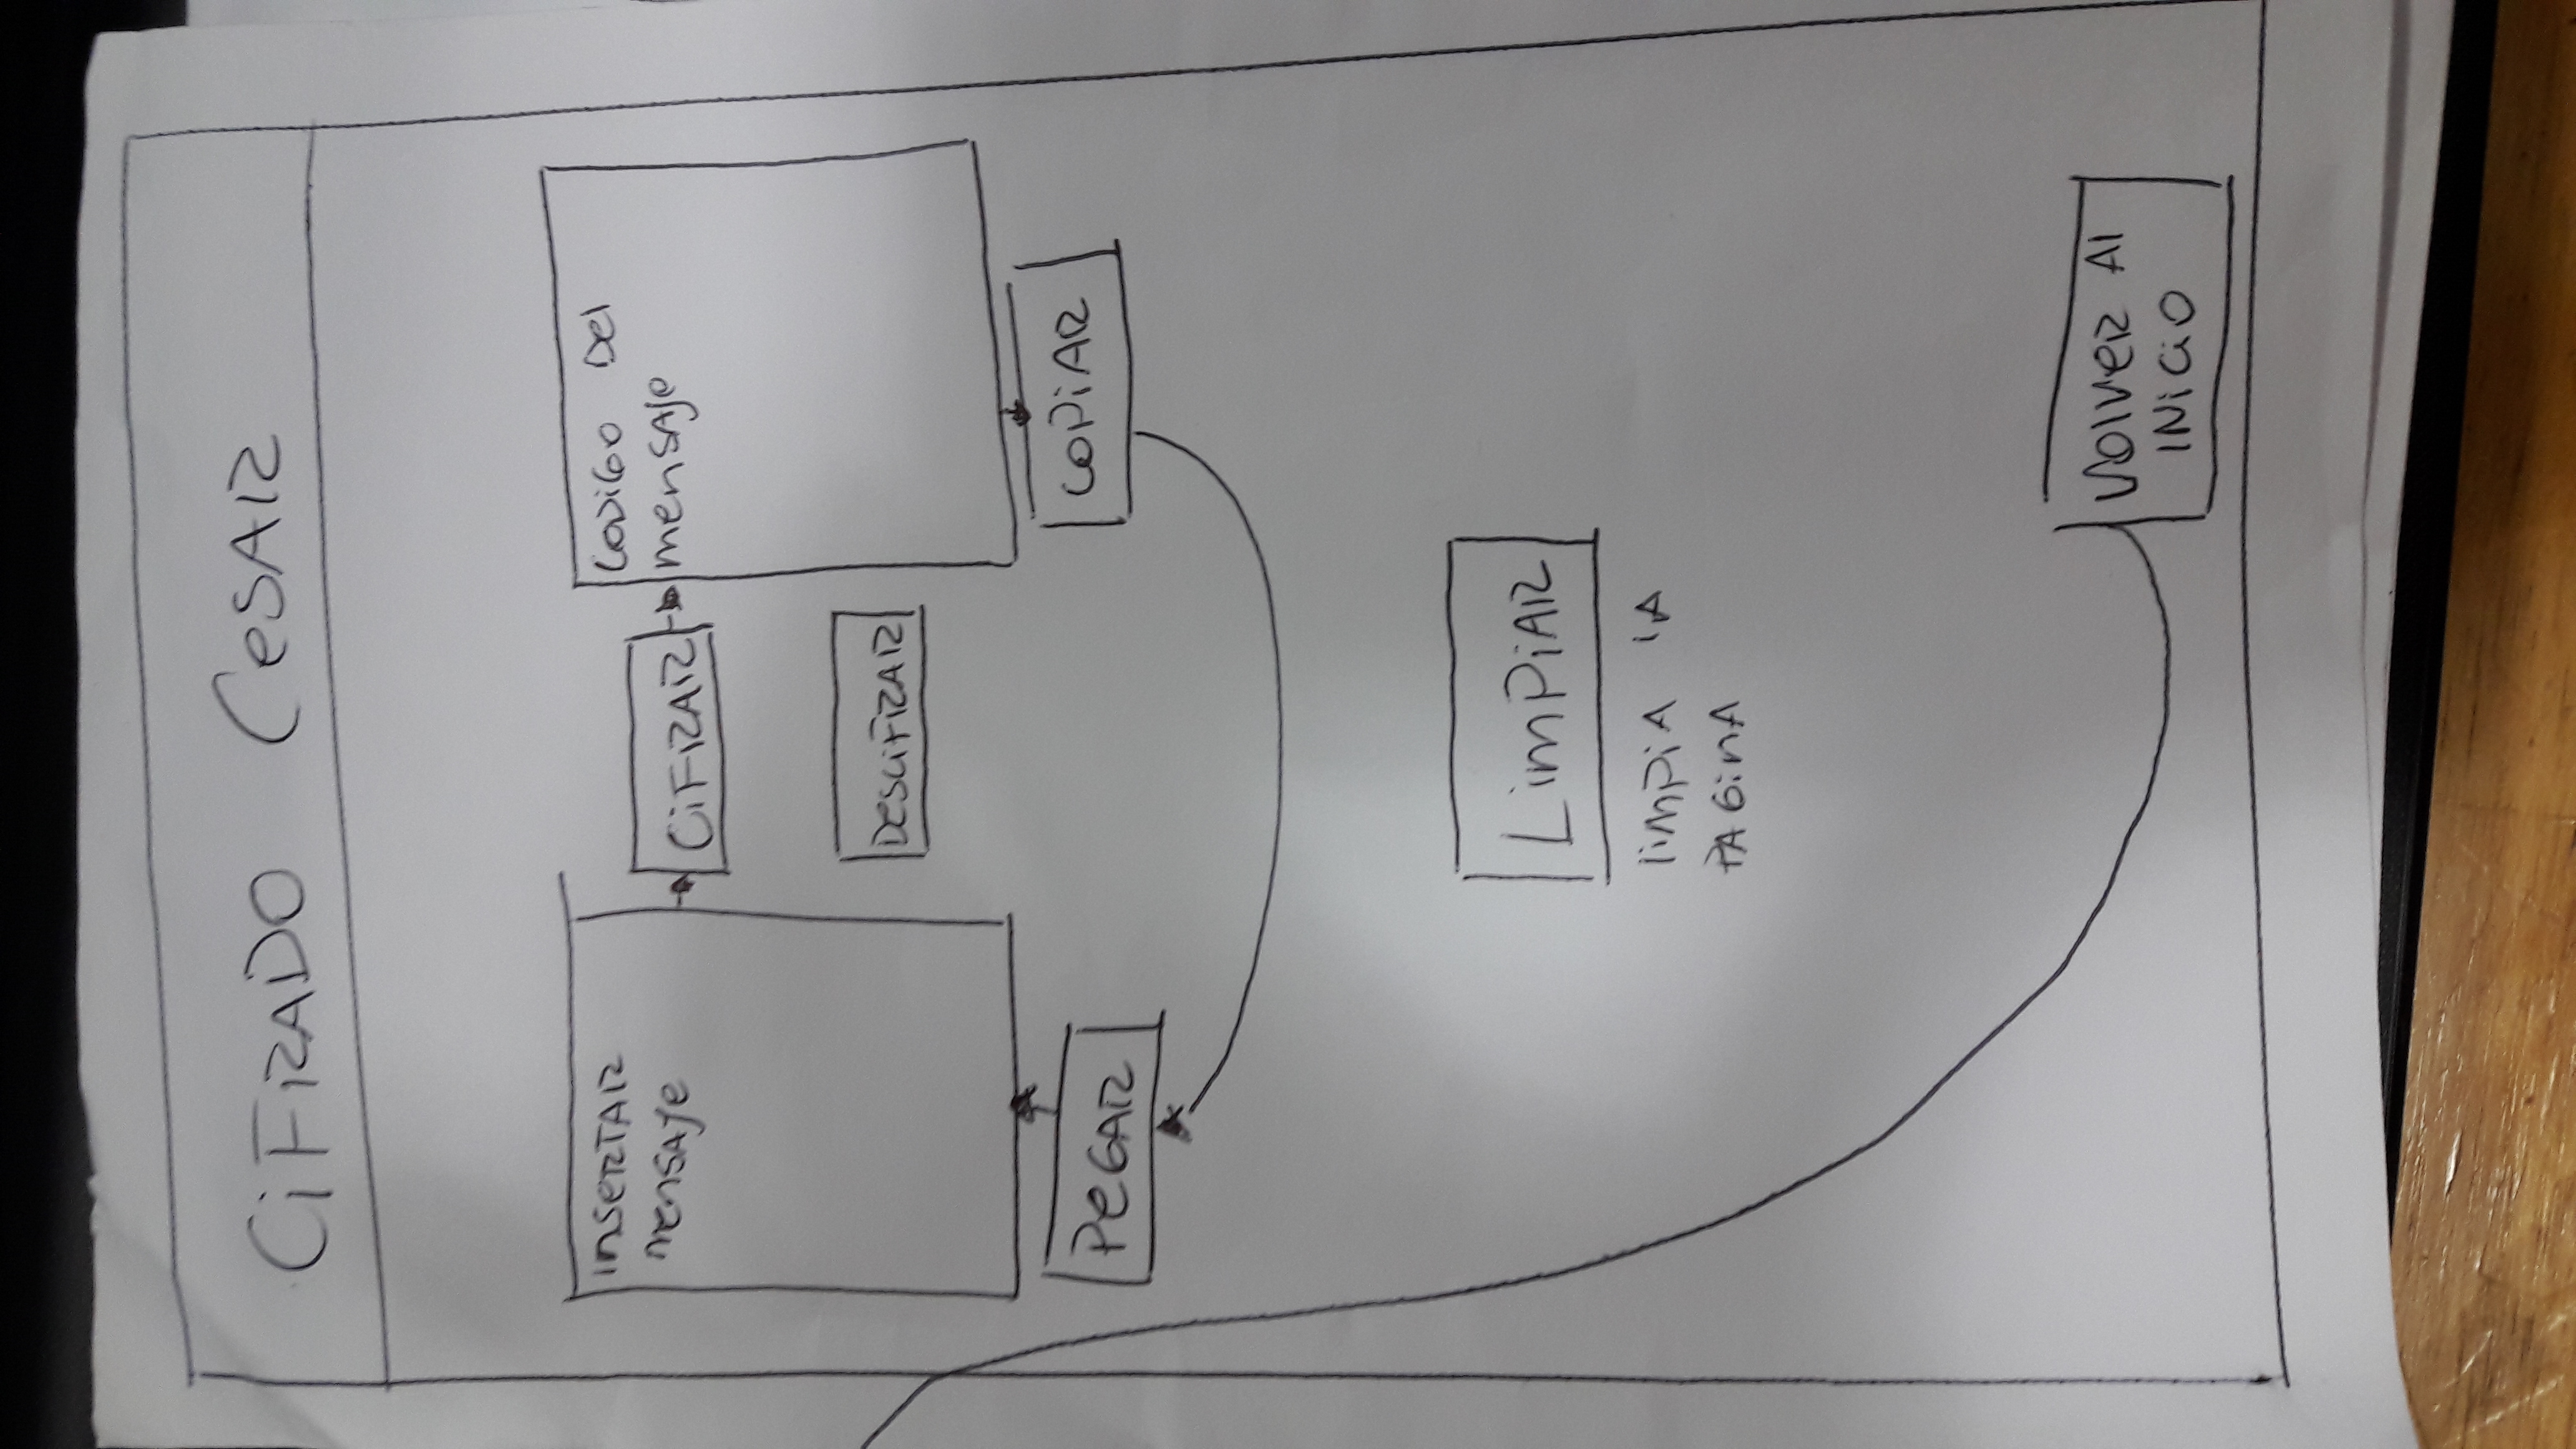 CiFRADO CeSAR
inserTAR
mensAje
CiFRAR
CoDiGo Del
mensAje
DesciFRAR
PeGAR
CoPiAR
LimPiAR
limPiA lA
PAGinA
VolVeR Al
iNiciO